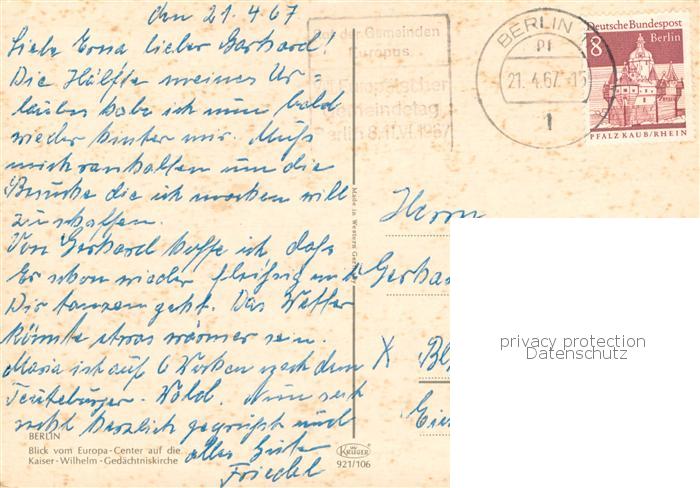 den 21.4.67
Liebe Erna lieber Gerhard!
Die Hälfte meines Ur-
laubes habe ich nun bald
wieder hinter mir. Muß
mich ranhalten um die
Besuche die ich machen will
zu schaffen.
Von Gerhard hoffe ich, daß
Er schon wieder fleißig mit
Dir tanzen geht. Das Wetter
könnte etwas wärmer sein.
Maria ist auf 6 Wochen nach dem
Teuteburger-Wald. Nun seid
recht herzlich gegrüßt und
alles Gute
Friedel
BERLIN
Blick vom Europa-Center auf die
Kaiser-Wilhelm-Gedächtniskirche
Made in Western Germany
KRÜGER
921/106
der Gemeinden
Europas
Berlin 8.-11.VI.1967
BERLIN
21.4.67-15
1
Deutsche Bundespost
8 Berlin
PFALZ KAUB/RHEIN
Herrn
Gerhar
X
privacy protection
Datenschutz